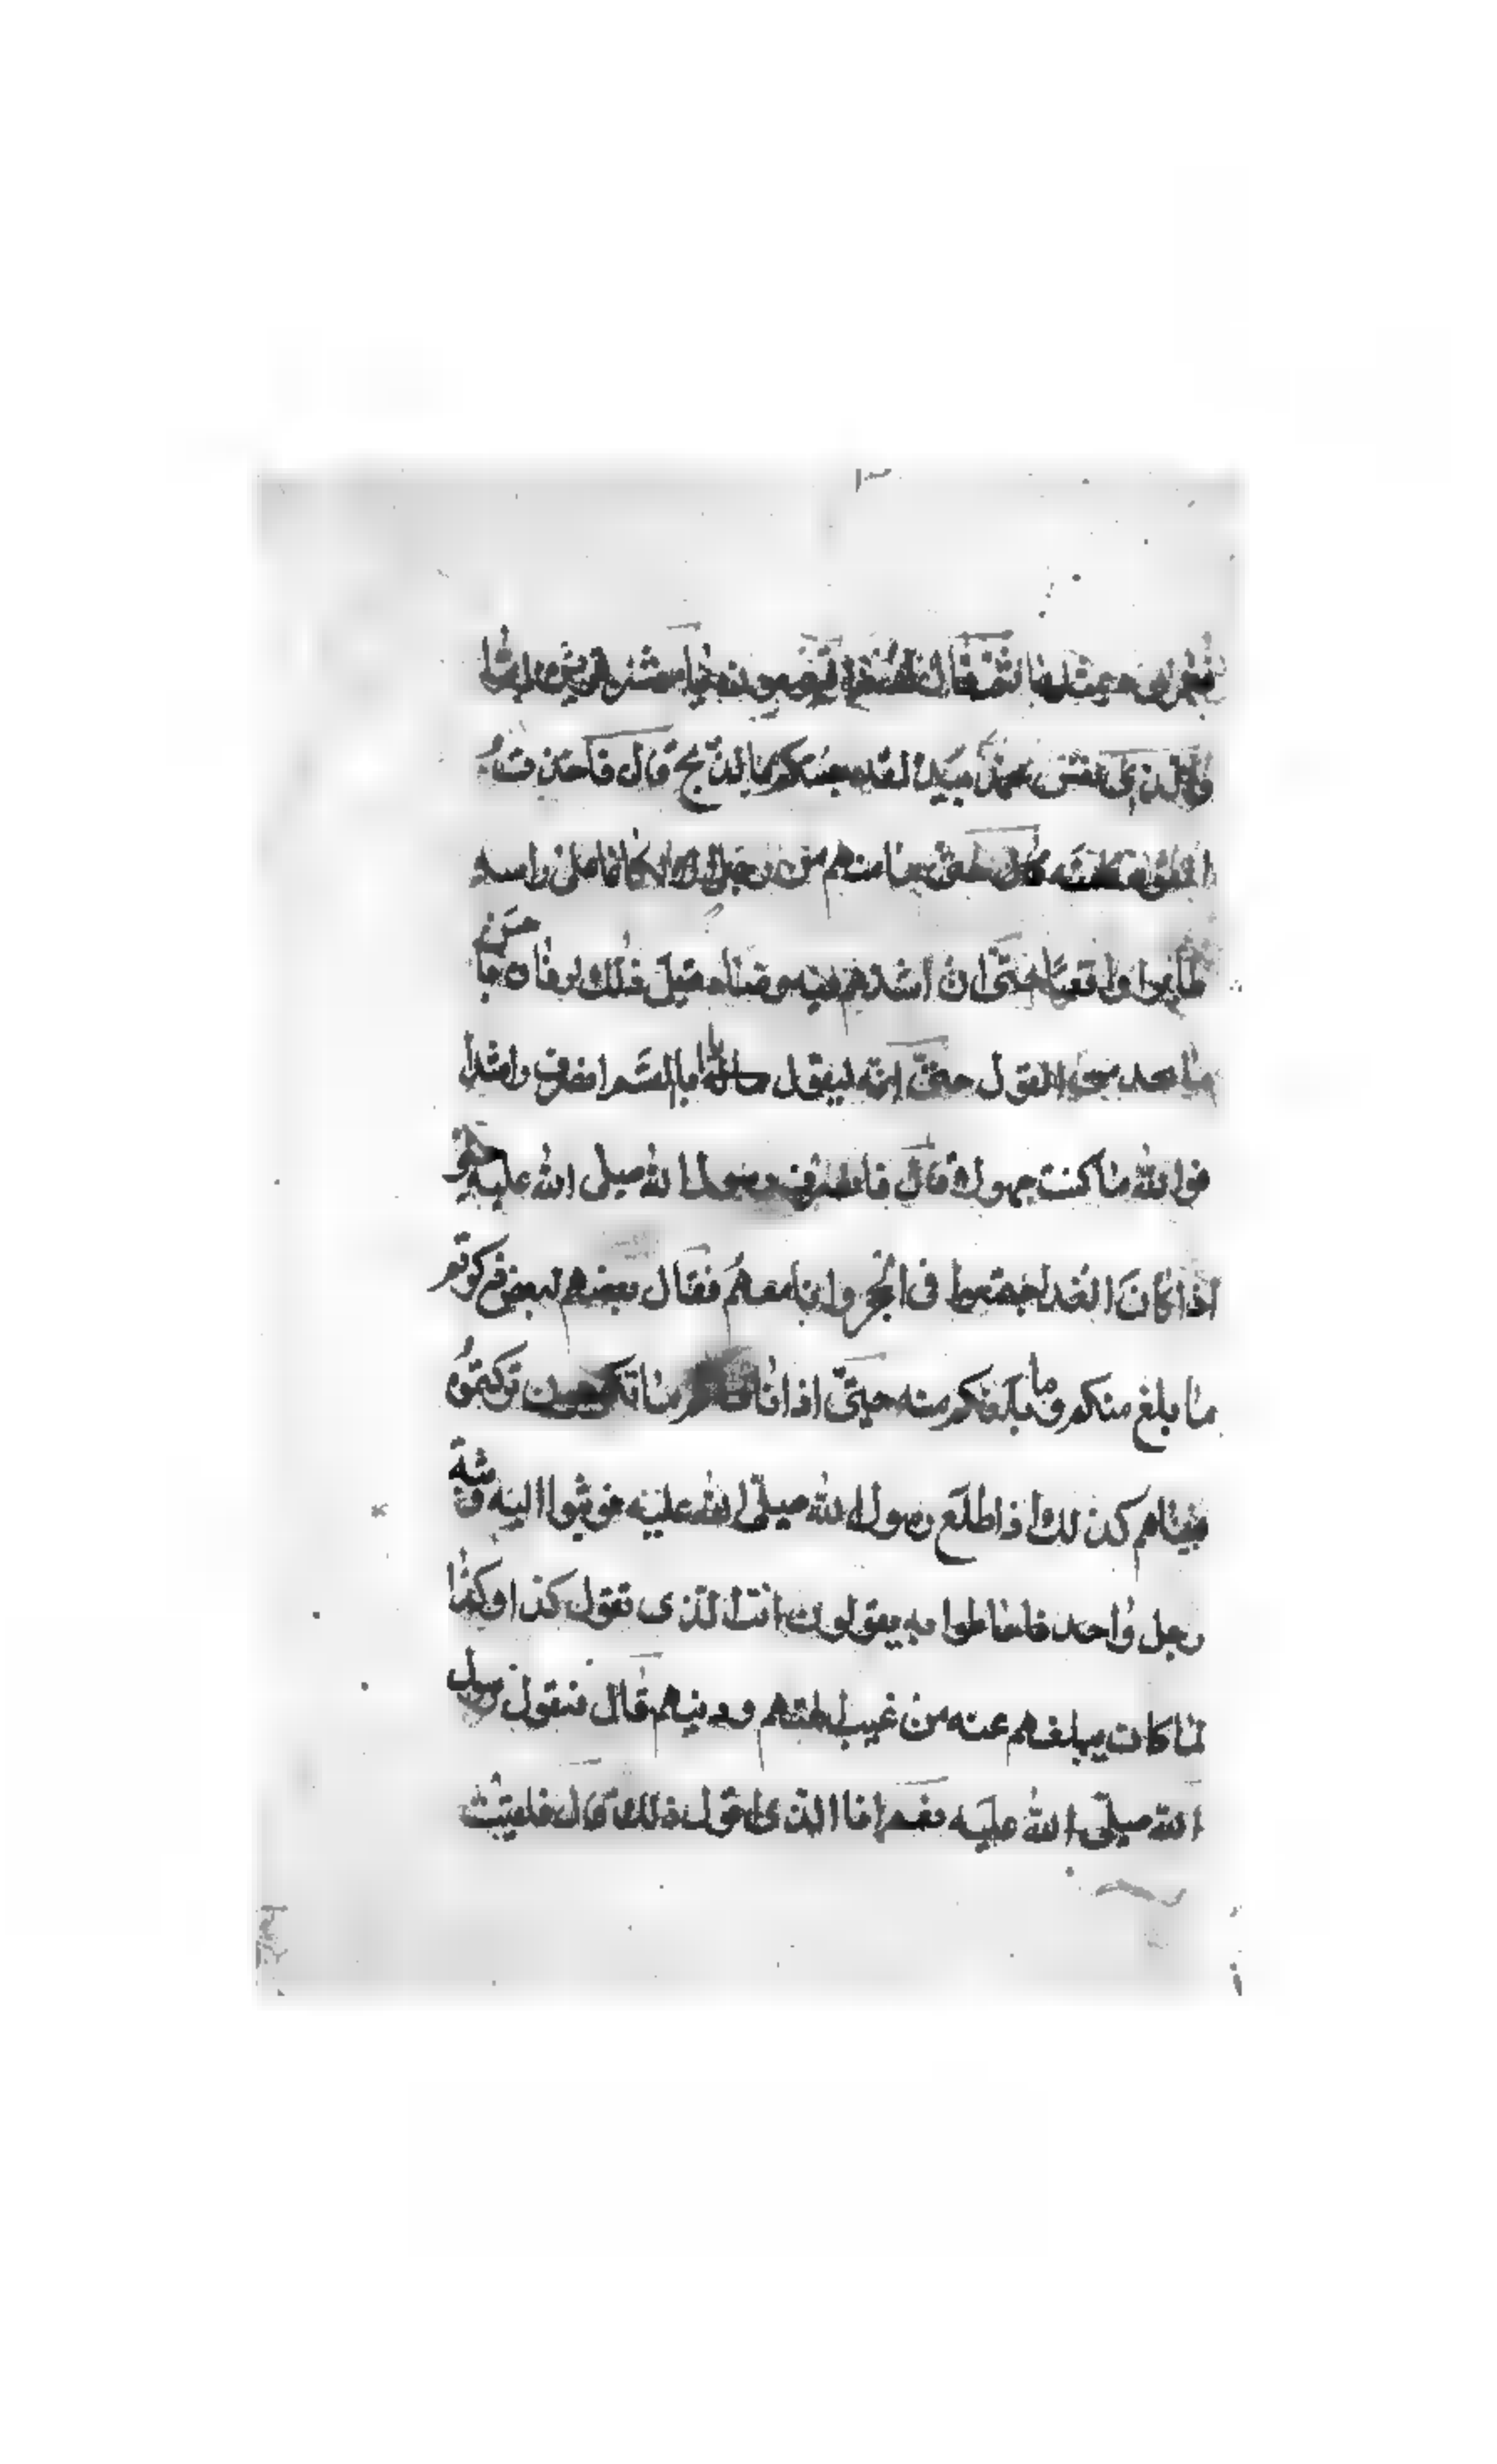 فقال تسمعون يا معشر قريش اما
والذى نفس محمد بيده لقد جئتكم بالذبح قال فاخذت
القوم كلمته حتى ما منهم من رجل الا كانما على راسه
طاير واقع حتى ان اشدهم فيه وضاه قبل ذلك ليرفاه حسن
ما يجد من القول حتى انه ليقول يا ابا القسم انصرف راشدا
فوالله ما كنت جهولا قال فانصرف رسول الله صلى الله عليه حتى
اذا كان الغد اجتمعوا فى الحجر وانا معهم فقال بعضهم لبعض ذكرتم
ما بلغ منكم وما بلغكم منه حتى اذا اتاكم بما تكرهون تركتموه
فبيناهم كذلك اذ اطلع رسول الله صلى الله عليه فوثبوا اليه وثبة
رجل واحد فاحاطوا به يقولون انت الذى تقول كذا وكذا
لما كان يبلغهم عنه من عيب الهتهم ودينهم قال فيقول رسول
الله صلى الله عليه نعم انا الذى اقول ذلك قال فلقد